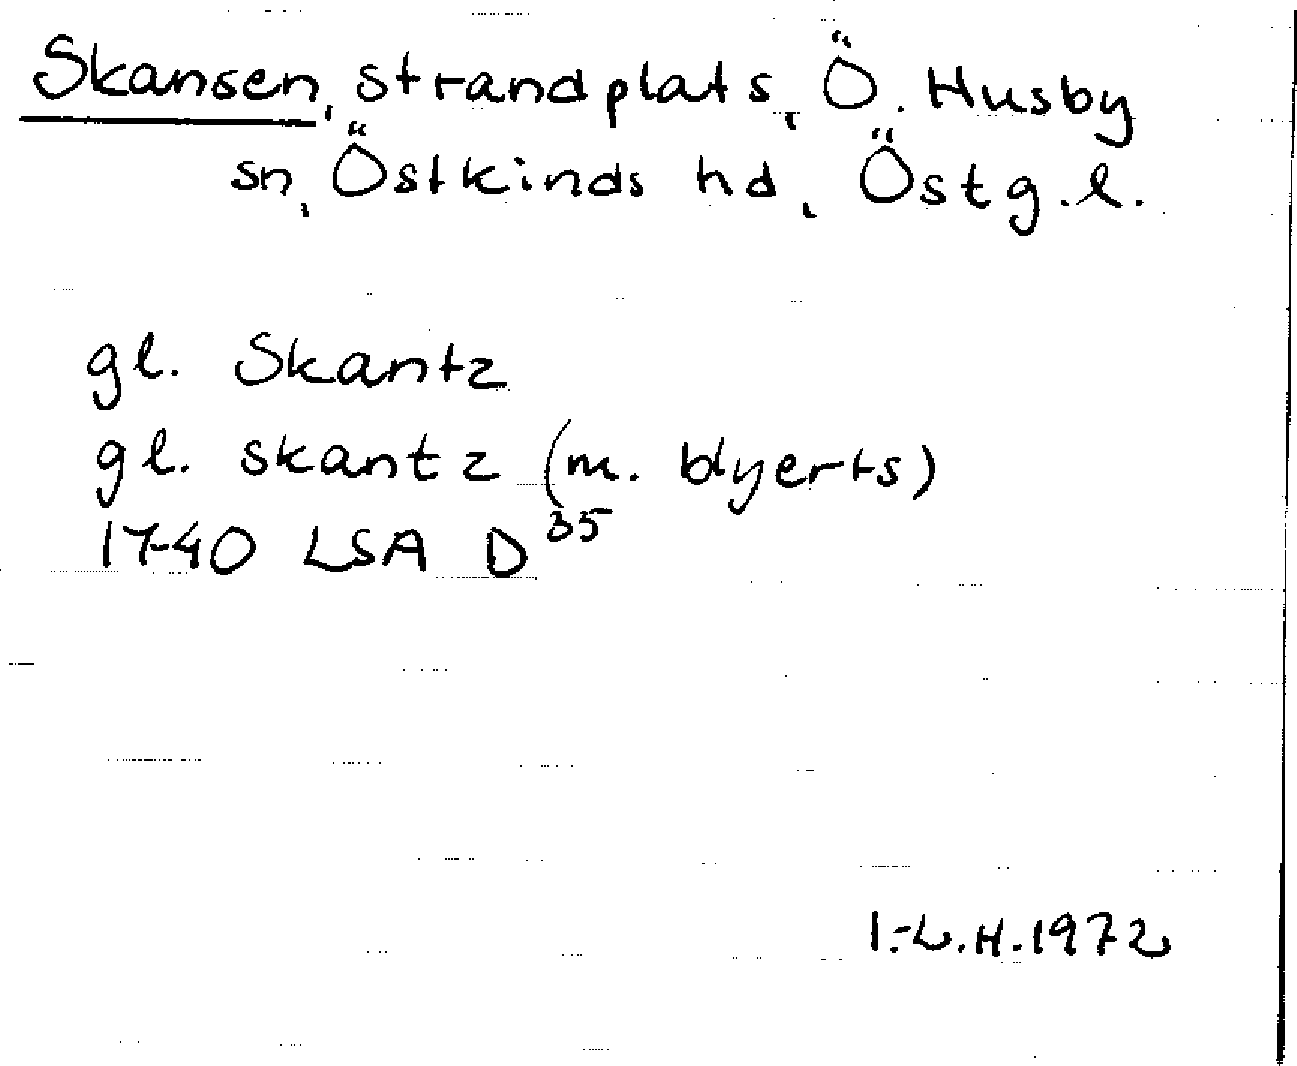 Skansen, strandplats, Ö. Husby
sn, Östkinds hd, Östg.l.
gl. Skantz
gl. skantz (m. blyerts)
1740 LSA D 35
I.-L.H.1972